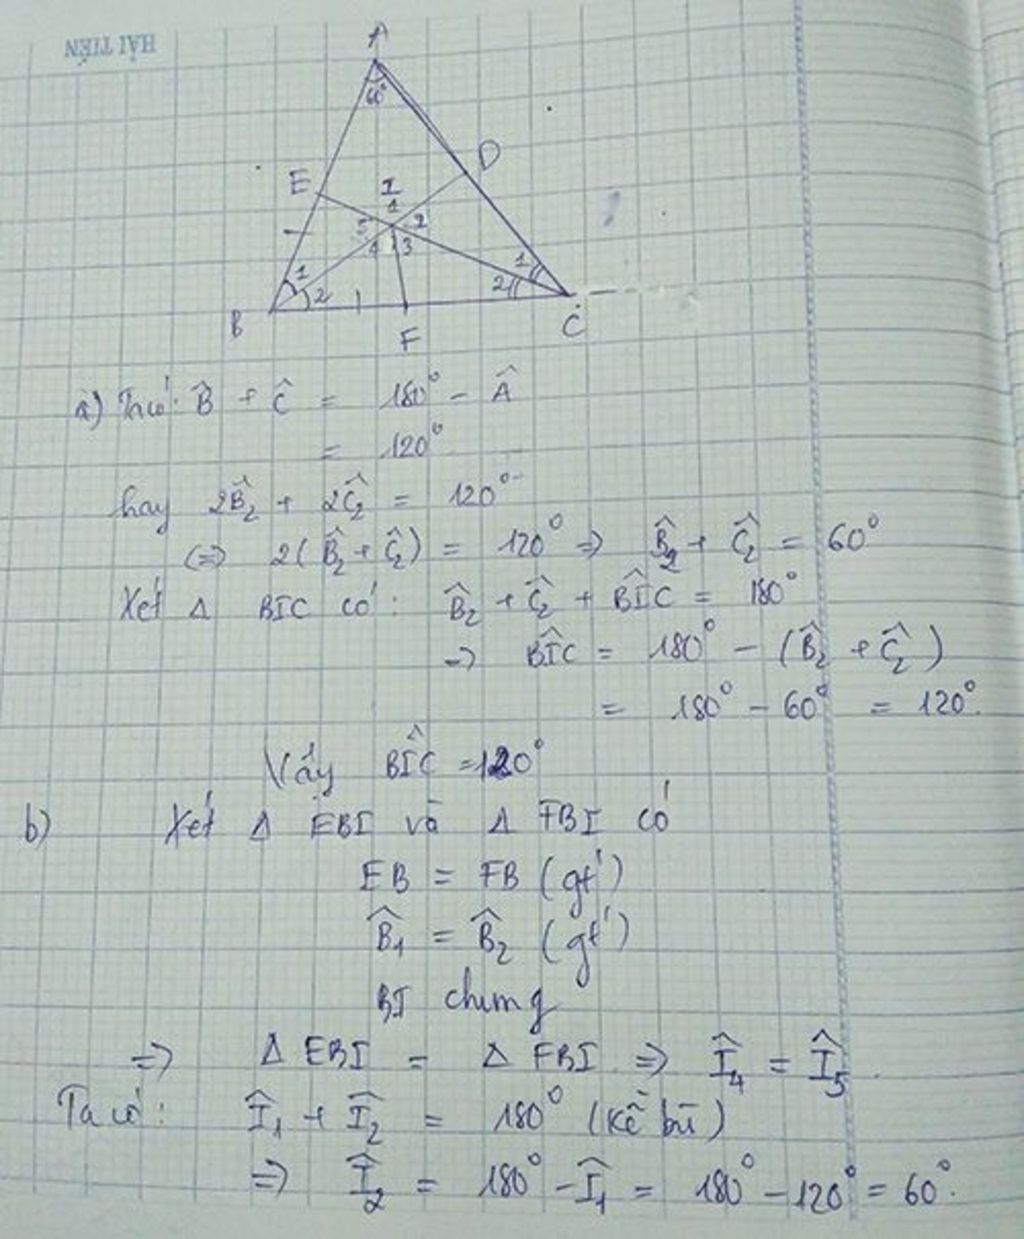 HẢI TIẾN
A
60°
D
E
I
1
5 2
4 3
1
1
2
2
B
F
C
a) Ta có: B̂ + Ĉ = 180° - Â
= 120°
hay 2B̂₂ + 2Ĉ₂ = 120°
(=) 2(B̂₂ + Ĉ₂) = 120° => B̂₂ + Ĉ₂ = 60°
Xét Δ BIC có: B̂₂ + Ĉ₂ + BÎC = 180°
=> BÎC = 180° - (B̂₂ + Ĉ₂)
= 180° - 60° = 120°.
Vậy BÎC = 120°
b) Xét Δ EBI và Δ FBI có
EB = FB (gt)
B̂₁ = B̂₂ (gt)
BI chung
=> Δ EBI = Δ FBI => Î₄ = Î₅.
Ta có: Î₁ + Î₂ = 180° (kề bù)
=> Î₂ = 180° - Î₁ = 180° - 120° = 60°.